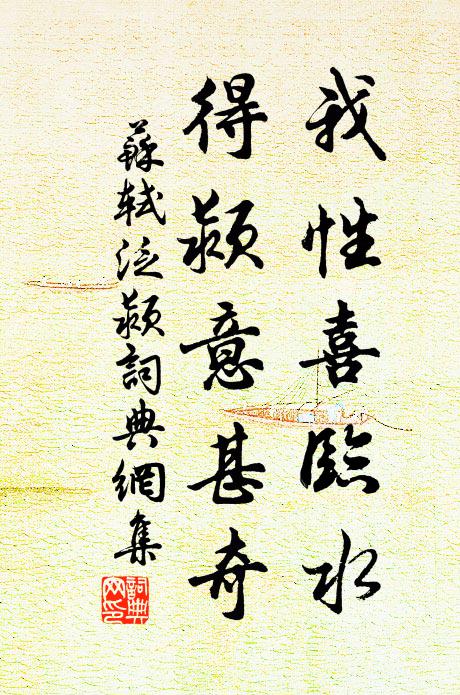 我性喜臨水
得潁意甚奇
蘇軾泛潁詞典網集
詞典
网印